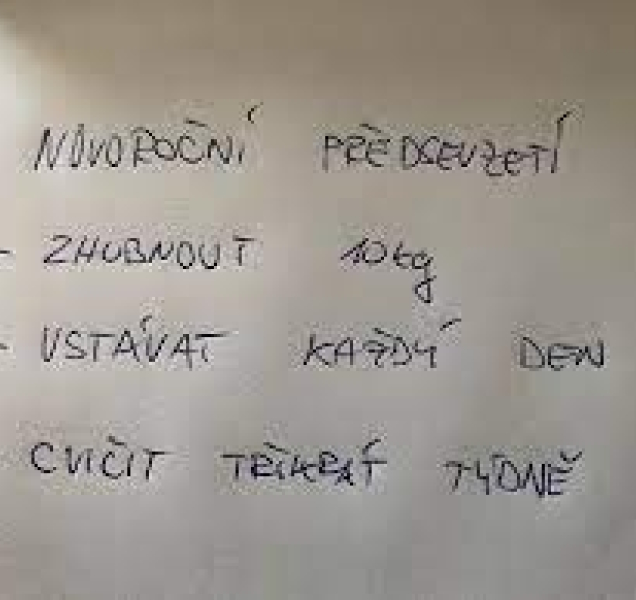 NOVOROČNÍ PŘEDSEVZETÍ
- ZHUBNOUT 10 kg
- VSTÁVAT KAŽDÝ DEN
CVIČIT TŘIKRÁT TÝDNĚ